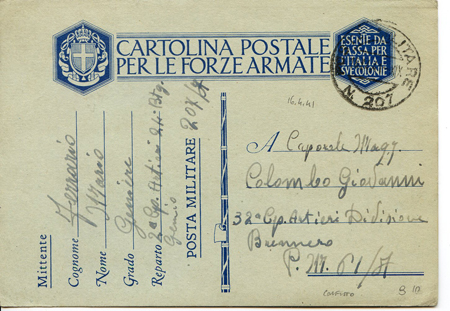 CARTOLINA POSTALE
PER LE FORZE ARMATE
ESENTE DA
TASSA PER
L'ITALIA E
SVE COLONIE
N. 207
16.4.41
Mittente
Cognome Ferrario
Nome Mario
Grado Geniere
Reparto 2ª Cp. Artieri
Genio
POSTA MILITARE 207/A
A Caporale Magg.
Colombo Giovanni
32ª Cp. Artieri Divisione
Brennero
P. M. 61/A